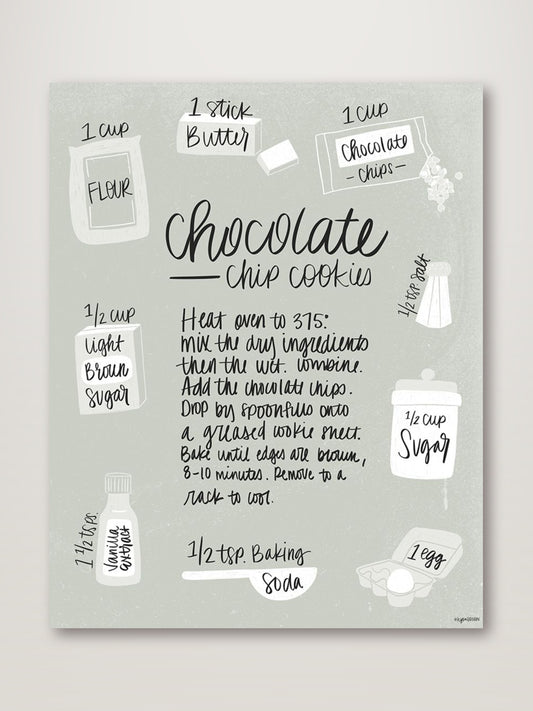 1 cup
FLOUR
1 stick
Butter
1 cup
Chocolate
- chips -
chocolate
— chip cookies
1/2 tsp salt
1/2 cup
light
Brown
Sugar
Heat oven to 375°
mix the dry ingredients
then the wet. combine.
Add the chocolate chips.
Drop by spoonfuls onto
a greased cookie sheet.
Bake until edges are brown,
8-10 minutes. Remove to a
rack to cool.
1/2 cup
Sugar
1 1/2 tsps.
Vanilla
extract
1/2 tsp. Baking
Soda
1 egg